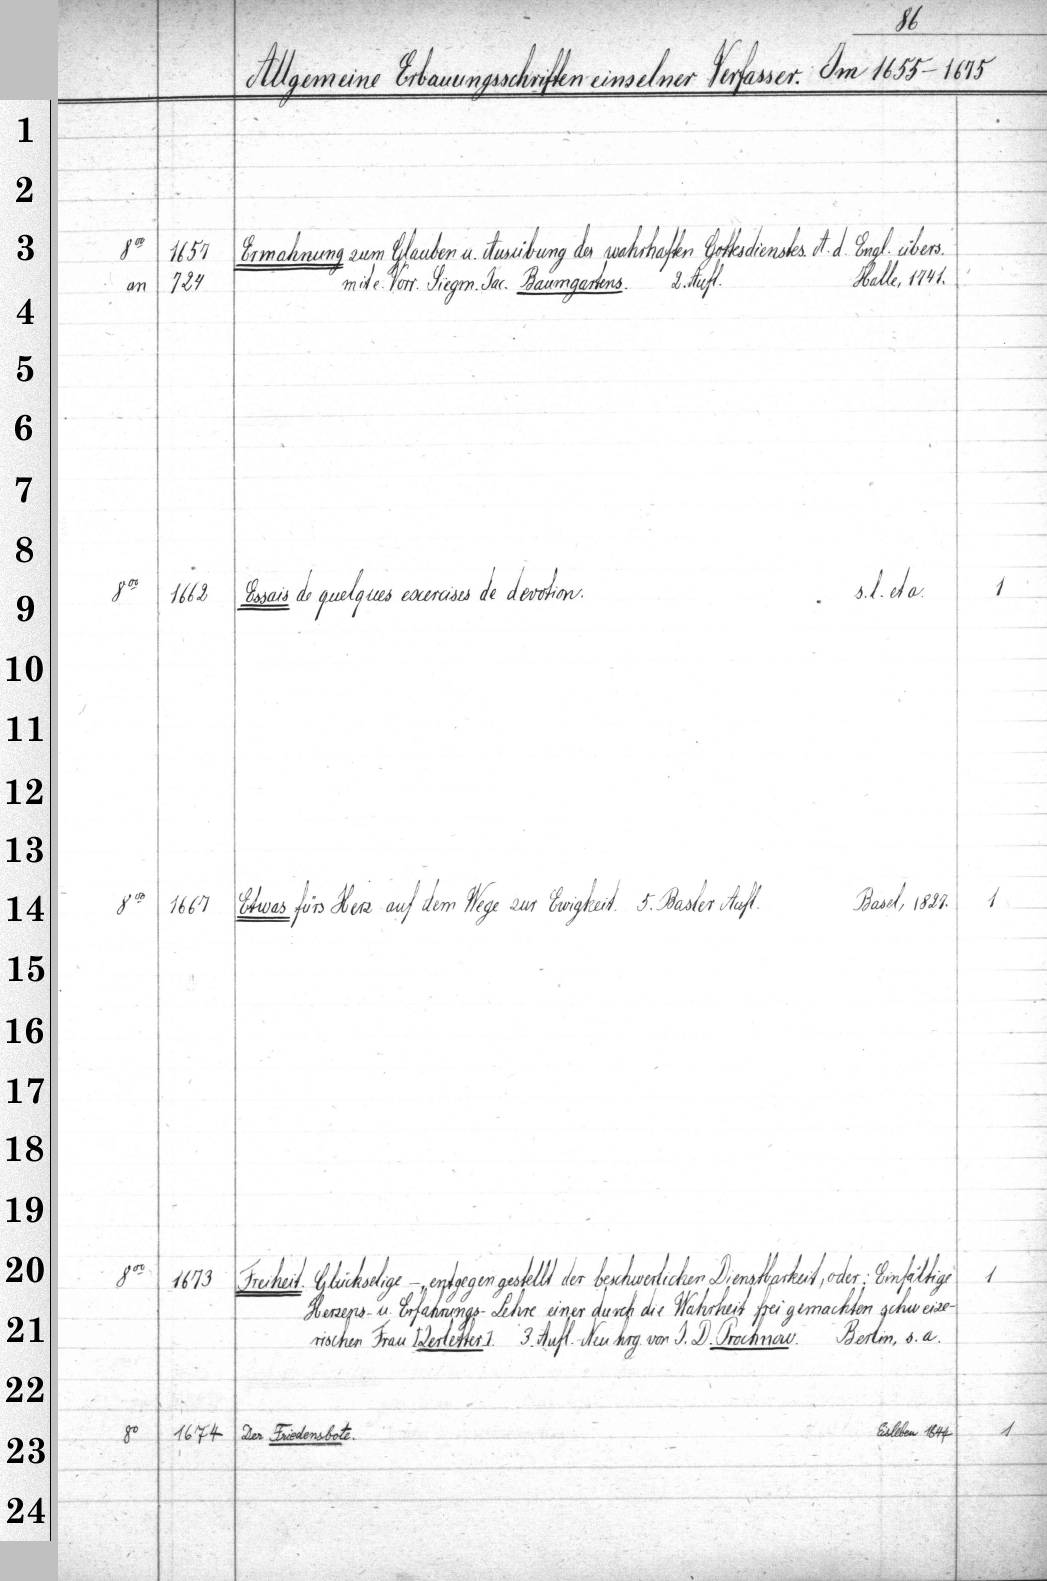 86
Allgemeine Erbauungsschriften einzelner Verfasser. Im 1655-1675
1
2
3 8°° 1657 Ermahnung zum Glauben u. Ausübung des wahrhaften Gottesdienstes. A. d. Engl. übers.
an 724 mit e. Vorr. Siegm. Jac. Baumgartens. 2. Aufl. Halle, 1741.
4
5
6
7
8
9 8°° 1662 Essais de quelques exercises de devotion. s. l. et a. 1
10
11
12
13
14 8°° 1667 Etwas fürs Herz auf dem Wege zur Ewigkeit. 5. Basler Aufl. Basel, 1827. 1
15
16
17
18
19
20 8°° 1673 Freiheit. Glückselige -, entgegen gestellt der beschwerlichen Dienstbarkeit, oder: Einfältige 1
Herzens- u. Erfahrungs-Lehre einer durch die Wahrheit frei gemachten schweize-
21 rischen Frau 3. Aufl. Neu hrg. von J. D. Prochnow. Berlin, s. a.
22
23 8° 1674 Der Friedensbote. Eisleben 1844 1
24